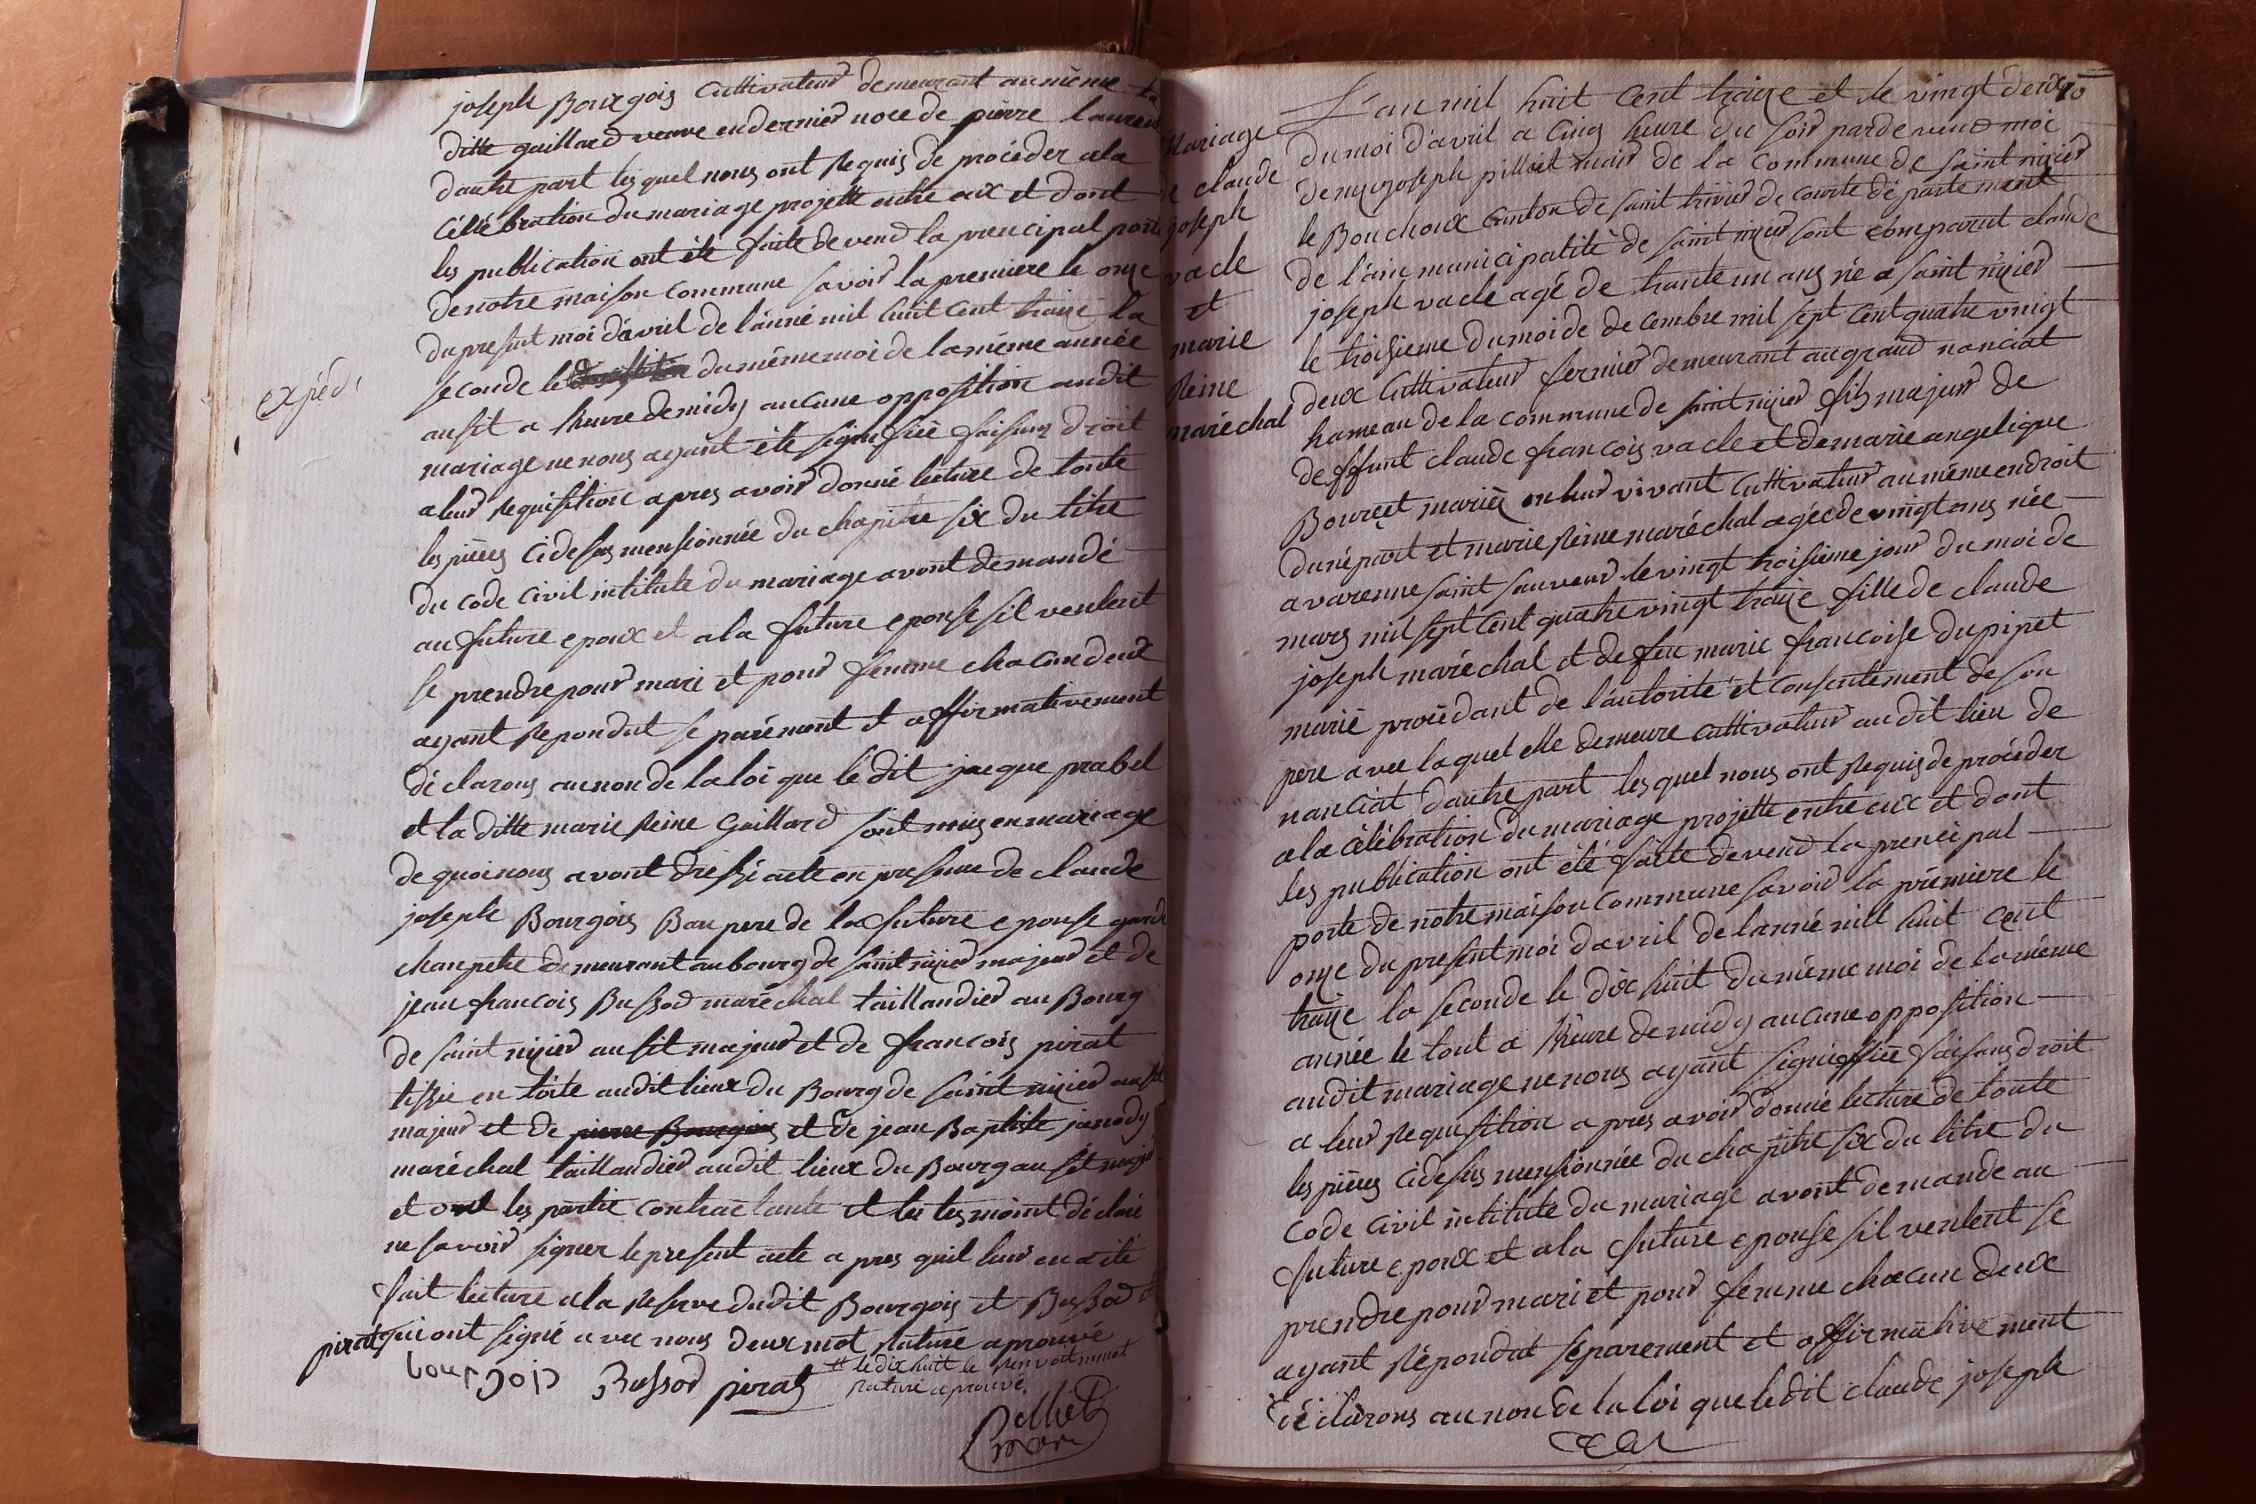 joseph Bourgois Cultivateur demeurant au même la
ditte gaillard veuve en dernier noce de pierre laurens
dautre part les quel nous ont Requis de procéder ala
Célébration du mariage projetté entre eux et dont
les publication ont été faite devend la prencipal porte
de notre maison commune savoir la premiere le onze
du present moi davril de lánné mil huit cent traize la
seconde le du même moi de la même année
ausit a lheure de midy aucune opposition audit
expéd.
mariage ne nous ayant été signifiée faisant droit
a leur Requisition apres avoir donné lecture de toute
les pièces cidesus mensionnée du chapitre six du titre
du code civil intitulé du mariage avont demandé
au future epoux et ala future epouse sil veulent
se prendre pour mari et pour femme chacun deux
ayant Repondut separément et affirmativement
déclarons au non de la loi que le dit jacque prabel
et la ditte marie Reine Gaillard sont unis en mariage
de quoi nous avont dressé acte en presence de claude
joseph Bourgois Beau pere de la future epouse garde
chanpetre demeurant au bourg de saint nizier majeur et de
jean francois Bussod maréchal taillandier au Bourg
de saint nizier ausit majeur et de francois pirat
tissie en toite audit lieux du Bourg de saint nizier ausit
majeur et de pierre Bourgois et de jean Baptiste janody
maréchal taillandier audit lieux du Bourg ausit majeur
et ont les partie contractante et les tesmoint déclaré
ne savoir signer le present acte a pres quil leur en a été
fait lecture ala Reserve dudit Bourgois et Bussod et
pirat qui ont signé avec nous deux mot Raturé aprouvé
bourjois Bussod pirat
# le dix huit le Renvoit
Raturé aprouvé.
Pillout
maire
70
Mariage
de claude
joseph
vacle
et
marie
Reine
maréchal
L'an mil huit cent traize et le vingt deux
du moi d'avril a cinq heure du soir pardevend moi
denis joseph pillout mair de la commune de saint nizier
le Bouchoux canton de saint trivier de courte département
de l'ain municipalité de saint nizier sont comparut claude
joseph vacle agé de trante un ans né a saint nizier
le troisieme du moi de decembre mil sept cent quatre vingt
deux Cultivateur fermier demeurant au grand nanciat
hameau de la commune de saint nizier fils majeur de
deffunt claude francois vacle et de marie angelique
Bourcet mariés en leur vivant Cultivateur au même endroit
duné part et marie Reine maréchal agée de vingt ans née
a varenne saint sauveur le vingt troisième jour du moi de
mars mil sept cent quatre vingt traize fille de claude
joseph maréchal et de feu marie francoise dupipet
marié procédant de l'autorité et consentement de son
pere avec laquel elle demeure cultivateur audit lieu de
nanciat dautre part les quel nous ont Requis de procéder
ala célébration du mariage projetté entre eux et dont
les publication ont été faite devend la prencipal
porte de notre maison commune savoir la première le
onze du present moi davril de lanné mil huit cent
traize la seconde le dix huit du même moi de la même
année le tout a lheure de midy aucune opposition
audit mariage ne nous ayant signiffiée faisant droit
a leur Requisition a pres avoir donné lecture de toute
les pièces cidesus mensionnée du chapitre six du titre du
code civil intitulé du mariage avont demandé au
future epoux et ala future epouse sil veulent se
prendre pour mari et pour femme chacun deux
ayant Répondut séparement et affirmativement
déclarons au non de la loi que ledit claude joseph